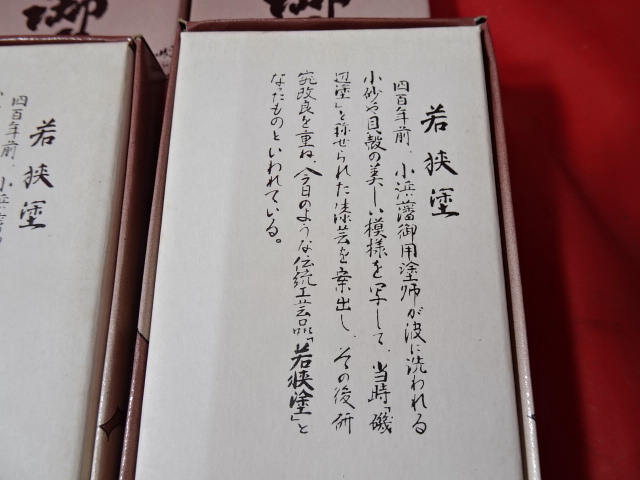 若狭塗
四百年前、小浜藩御用塗師が波に洗われる
小砂や貝殻の美しい模様を写して、当時「磯
辺塗」と称せられた漆芸を案出し、その後研
究改良を重ね、今日のような伝統工芸品「若狭塗」と
なったものといわれている。
若狭塗
四百年前、小浜藩
御